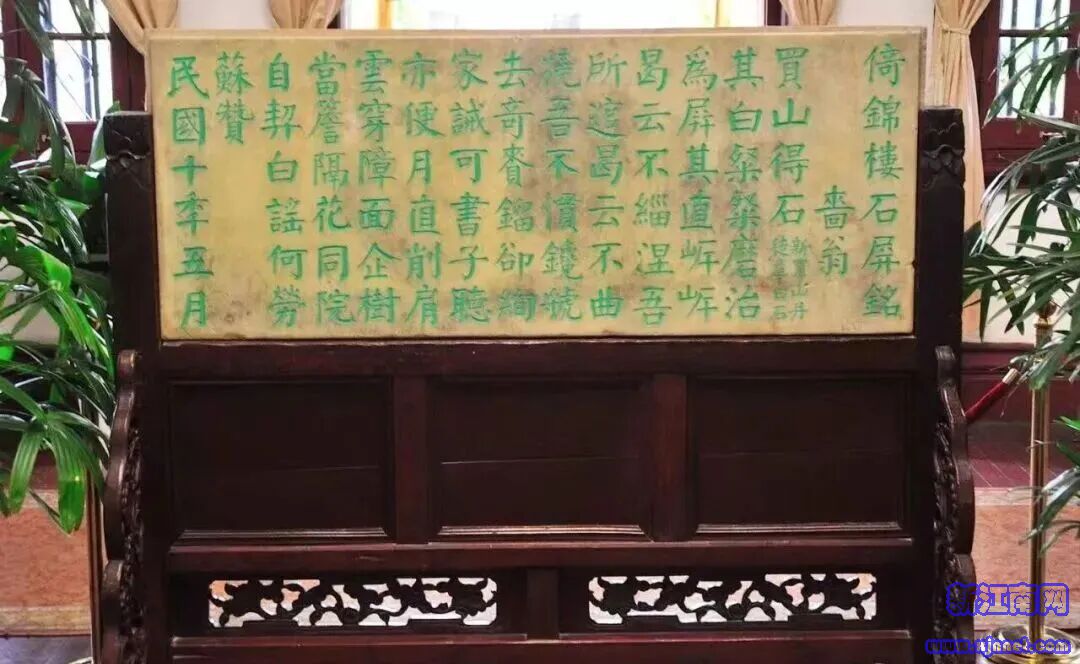 倚錦樓石屏銘
嗇翁
買山得石
其白粲粲磨治
爲屏其直岸岸
曷云不緇涅吾
所遮曷云不曲
撓吾不慣鏡號
去奇賚鎦卻絢
家誡可書子聽
亦便月直削肩
雲穿障面企樹
當簷隔花同院
自契白謠何勞
蘇贊
民國十秊五月
浙江南网